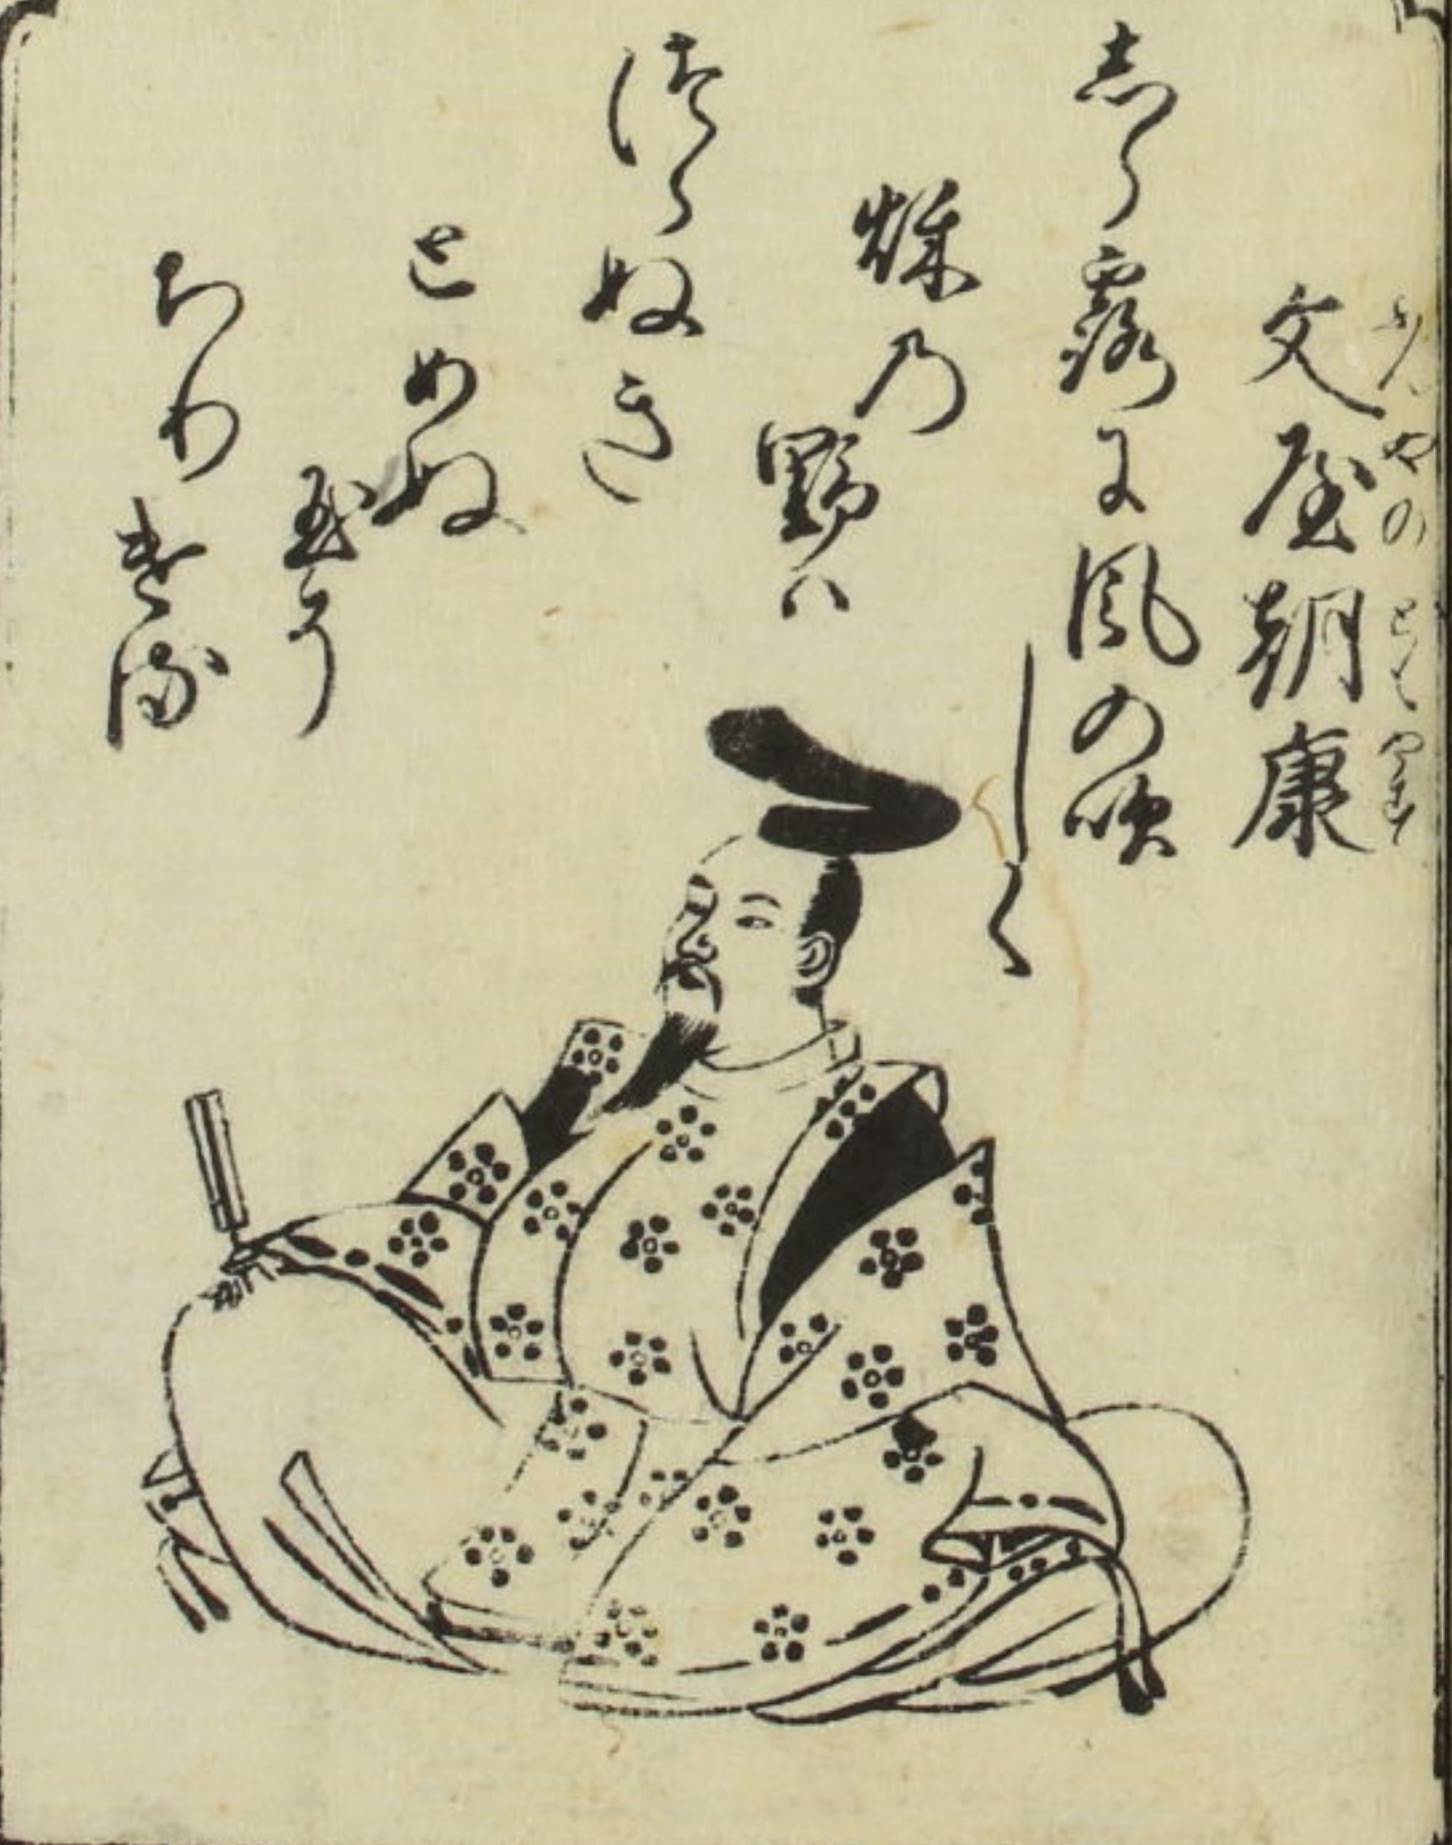 ぶんやのともやす
文屋朝康
志ら露に風の吹
しく
秌乃野ハ
つらぬき
とめぬ
玉そ
ちりける